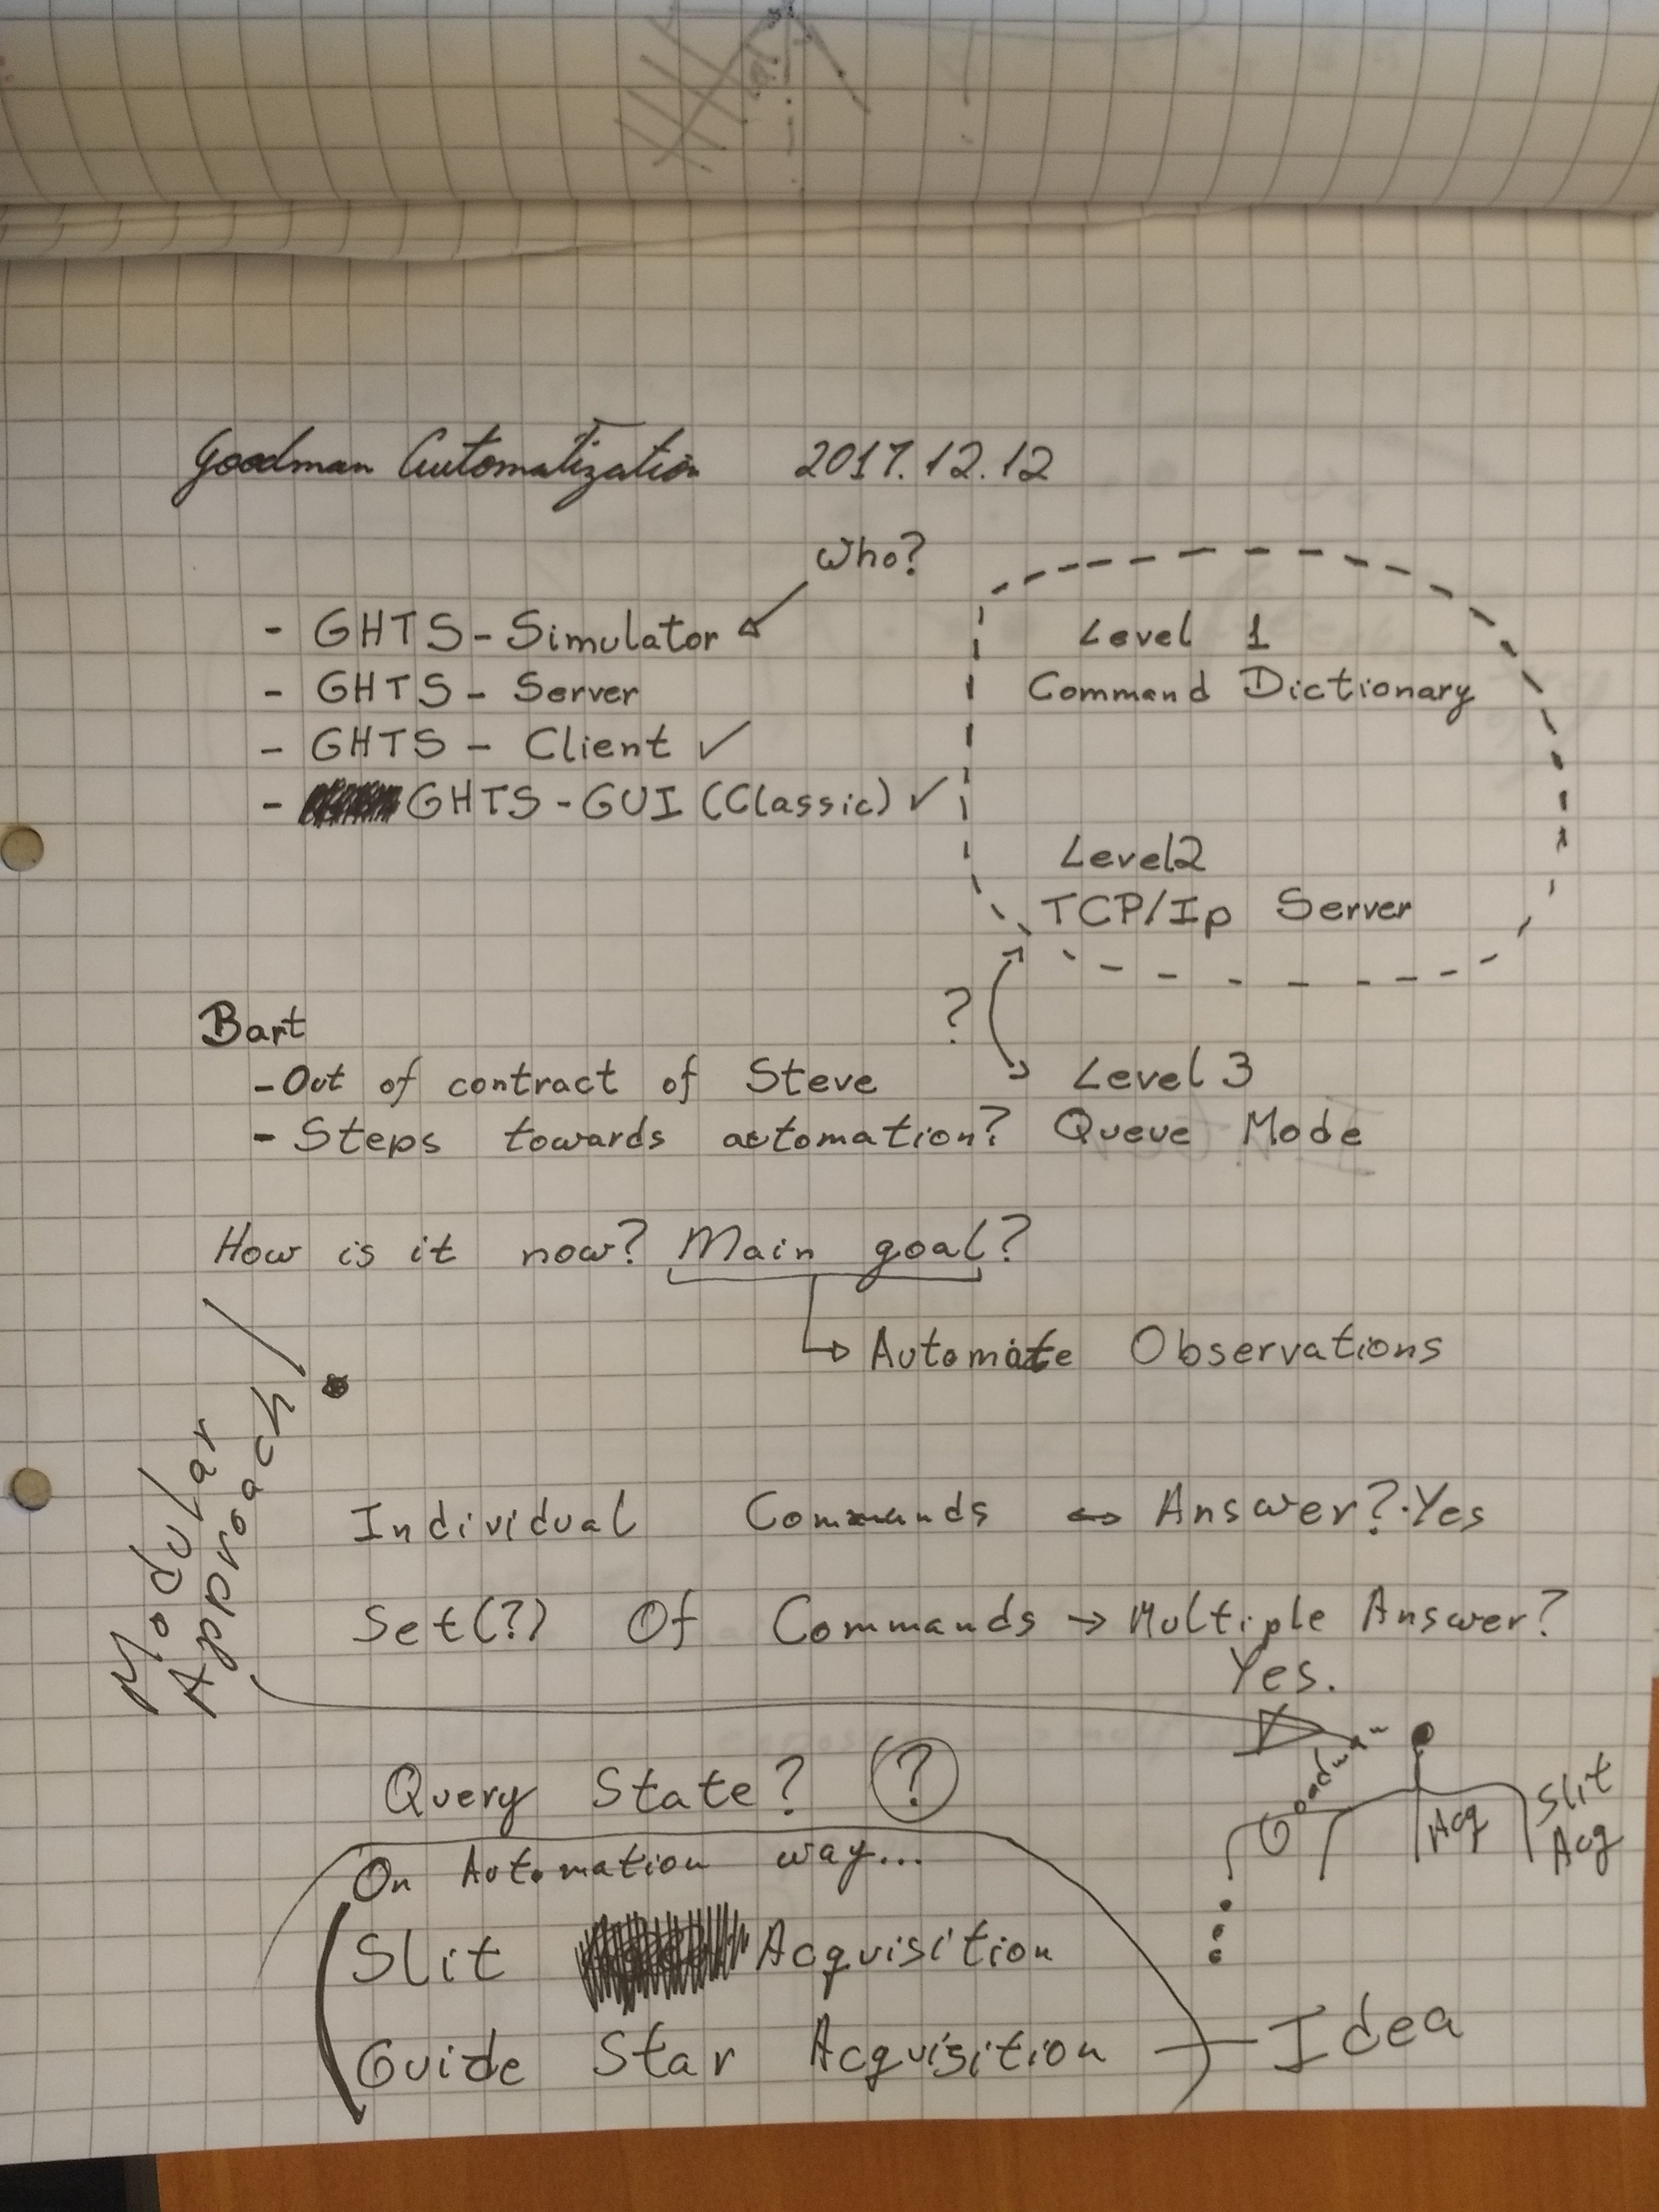 Goodman Automatization 2017.12.12
Who?
- GHTS-Simulator
- GHTS- Server
- GHTS - Client ✓
- GHTS-GUI (Classic) ✓
Level 1
Command Dictionary
Level2
TCP/Ip Server
?
Level 3
Queue Mode
Bart
-Out of contract of Steve
- Steps towards automation?
How is it now? Main goal?
Automate Observations
Modular
Approach
Individual Commands ↔ Answer?·Yes
Set(?) Of Commands → Multiple Answer?
Yes.
Query State? ?
Goodman
Acq
Slit
Acq
On Automation way...
Slit Acquisition
Guide Star Acquisition
Idea